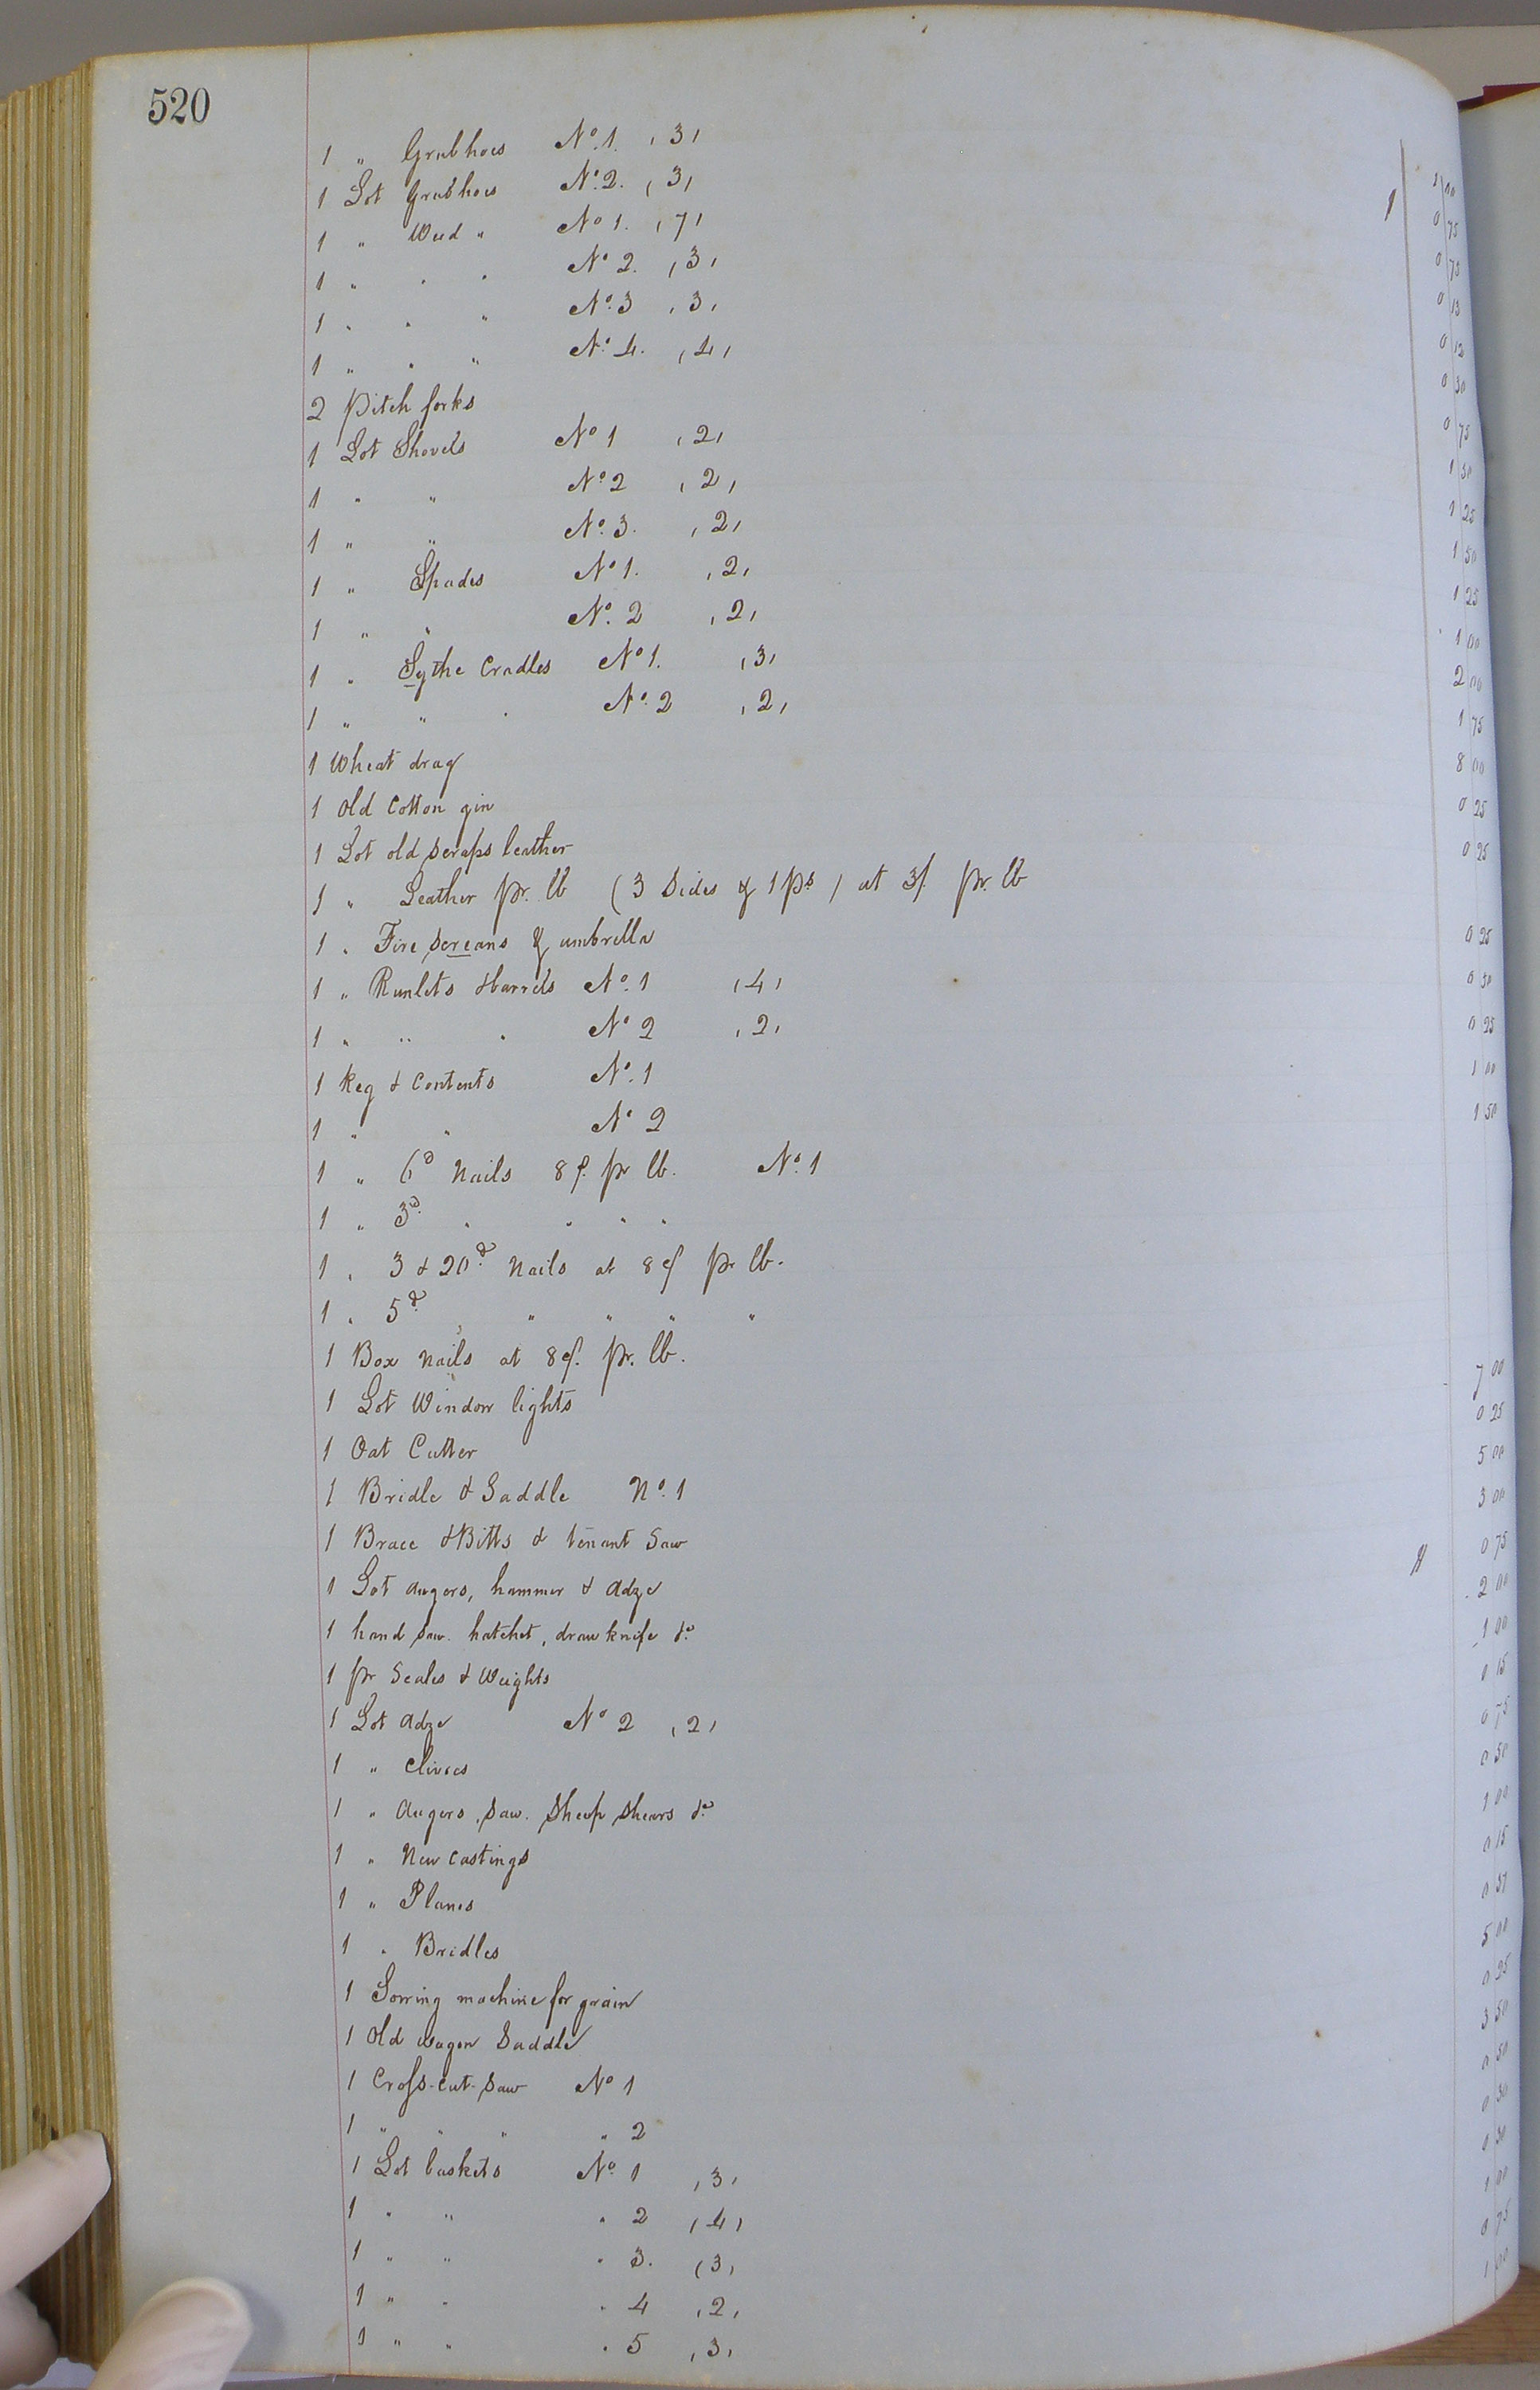 520
1 " Grubhoes No. 1. (3) 1 00
1 Lot Grubhoes No. 2. (3) 0 75
1 " Weed " No 1. (7) 0 75
1 " " " No 2. (3) 0 13
1 " " " No. 3 (3) 0 12
1 " " " No. 4. (4) 0 50
2 Pitch forks 0 75
1 Lot Shovels No 1 (2) 1 50
1 " " No 2 (2) 1 25
1 " " No. 3. (2) 1 50
1 " Spades No 1. (2) 1 25
1 " " No. 2 (2) 1 00
1 " Sythe Cradles No 1. (3) 2 00
1 " " " No. 2 (2) 1 75
1 Wheat drag 8 00
1 Old Cotton gin 0 25
1 Lot old scraps leather 0 25
1 " Leather pr. lb (3 Sides & 1 ps) at 3/. pr. lb
1 " Fire screans & umbrella 0 25
1 " Runlets & barrels No. 1 (4) 0 50
1 " " " No 2 (2) 0 25
1 Keg & Contents No. 1 1 00
1 " " No 2 1 50
1 " 6d Nails 8 ¢. pr lb. No. 1
1 " 3d. " " " "
1 " 3 & 20d. Nails at 8 ¢ pr lb.
1 " 5d. " " " " "
1 Box nails at 8 ¢. pr. lb.
1 Lot Window lights 7 00
1 Oat Cutter 0 25
1 Bridle & Saddle No. 1 5 00
1 Brace & Bitts & tenant Saw 3 00
1 Lot augers, hammer & Adze 0 75
1 hand saw. hatchet, draw knife &c 2 00
1 pr Scales & Weights 1 00
1 Lot Adze No 2 (2) 0 15
1 " Clivces 0 75
1 " Augers, saw. Sheep shears &c 0 50
1 " New castings 1 00
1 " Planes 0 15
1 " Bridles 0 37
1 Sowing machine for grain 5 00
1 Old wagon Saddle 0 25
1 Cross-cut-saw No 1 3 50
1 " " " " 2 0 50
1 Lot baskets No. 1 (3) 0 30
1 " " " 2 (4) 0 30
1 " " " 3. (3) 1 00
1 " " " 4 (2) 0 75
1 " " " 5 (3) 1 00